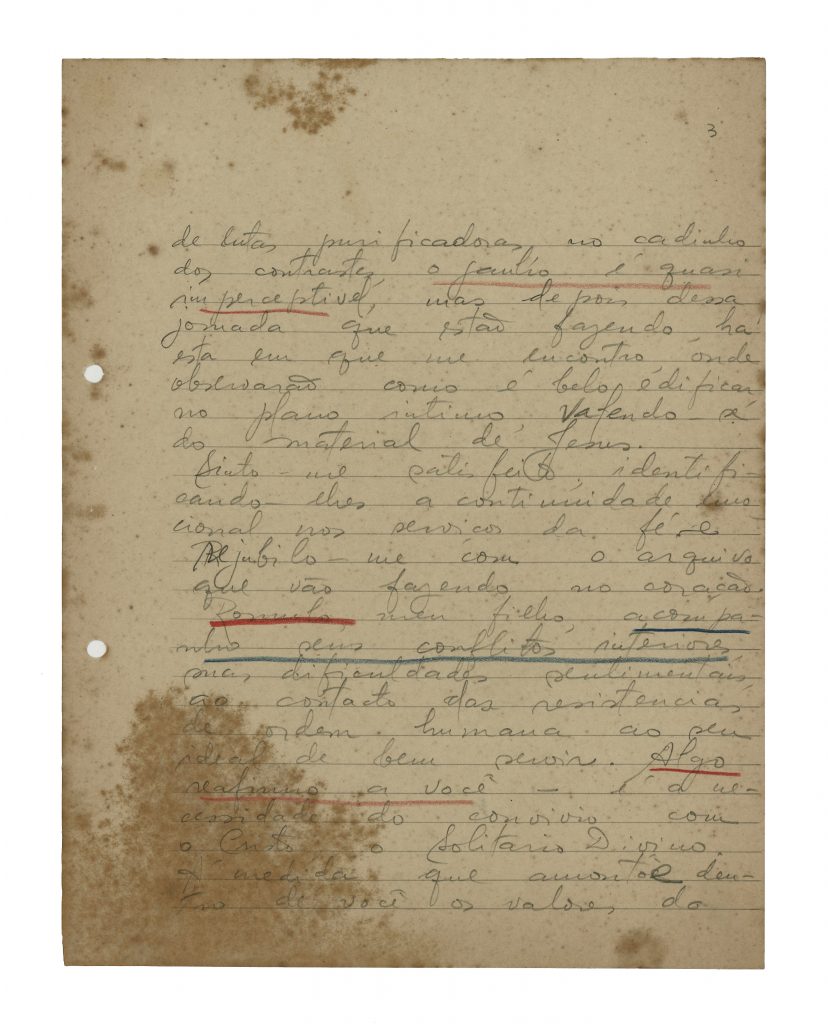 3
de lutas purificadoras, no cadinho
dos contrastes o ganho é quasi
imperceptivel, mas depois dessa
jornada que estão fazendo há
esta em que me encontro, onde
observarão como é belo edificar
no plano intimo valendo-se
do material de Jesus.
Sinto-me satisfeito, identifi-
cando-lhes a continuidade emo-
cional nos serviços da fé e
Rejubilo-me com o arquivo
que vão fazendo no coração.
Romulo, meu filho, acompa-
nho seus conflitos interiores
suas dificuldades sentimentais
ao contacto das resistencias
de ordem humana ao seu
ideal de bem servir. Algo
reafirmo a você - é a ne-
cessidade do convivio com
o Cristo o Solitario Divino.
Á medida que amontôe den-
tro de você os valores do